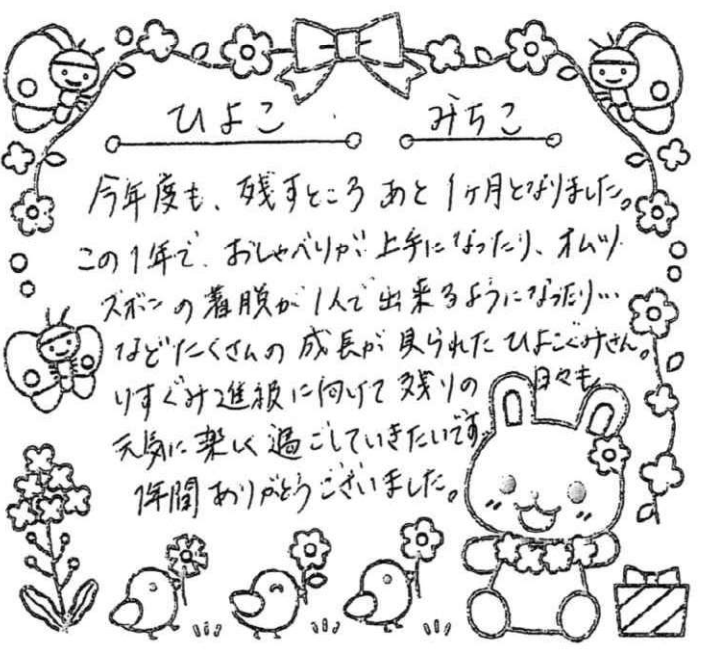 ひよこ みちこ
今年度も、残すところ あと 1ヶ月となりました。
この1年で、おしゃべりが 上手になったり、オムツ
ズボンの着脱が1人で出来るようになったり…
などたくさんの成長が見られたひよこぐみさん。
りすぐみ進級に向けて残りの日々も
元気に楽しく過ごしていきたいです
1年間ありがとうございました。